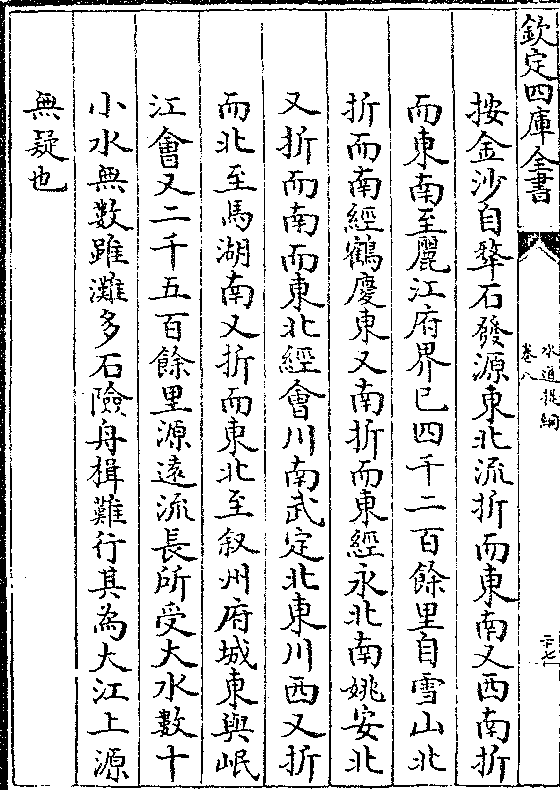 欽定四庫全書
水道提綱
卷八
二十七
按金沙自犛石發源東北流折而東南又西南折
而東南至麗江府界已四千二百餘里自雪山北
折而南經鶴慶東又南折而東經永北南姚安北
又折而南而東北經會川南武定北東川西又折
而北至馬湖南又折而東北至叙州府城東與岷
江會又二千五百餘里源遠流長所受大水數十
小水無數雖灘多石險舟楫難行其為大江上源
無疑也